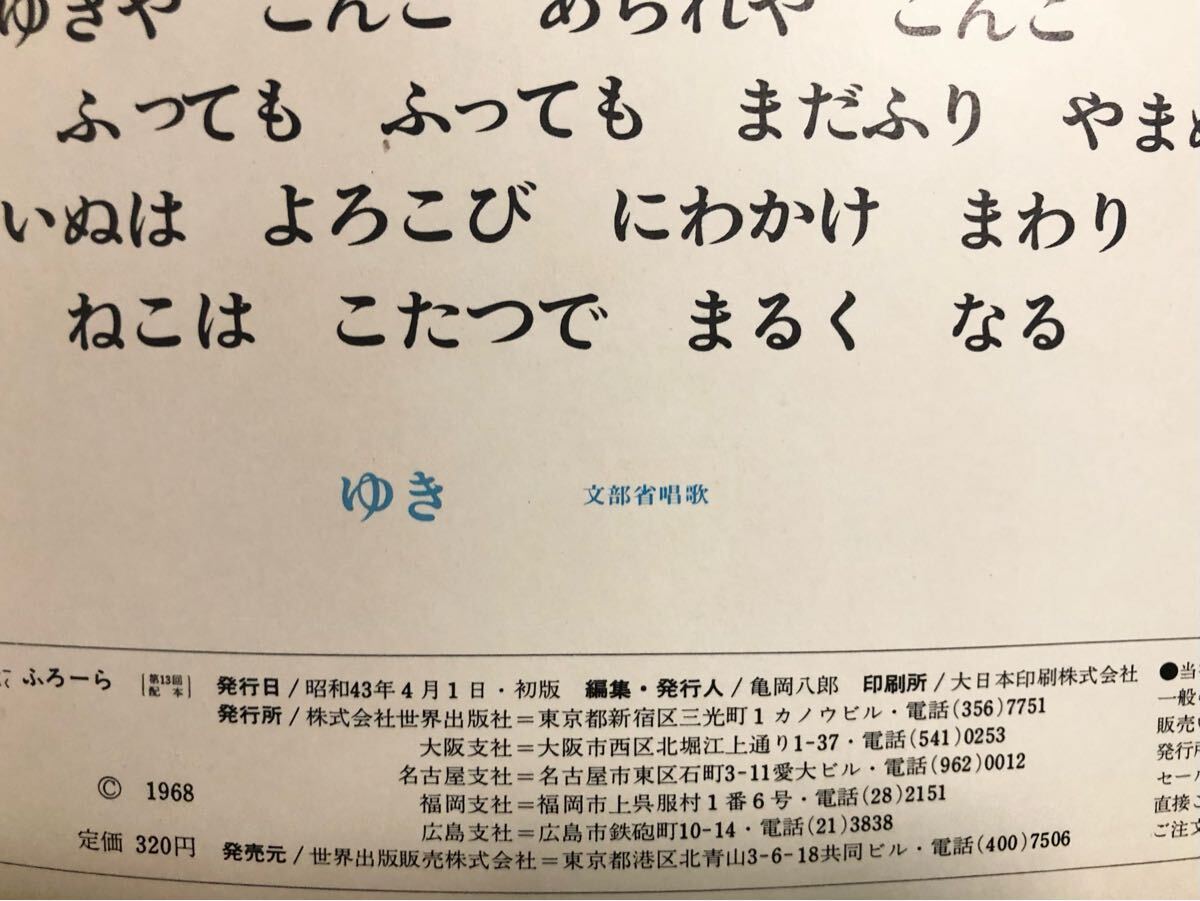 ゆきや こんこ あられや こんこ
ふっても ふっても まだふり やまぬ
いぬは よろこび にわかけ まわり
ねこは こたつで まるく なる
ゆき 文部省唱歌
ふろーら [第13回配本] 発行日/昭和43年4月1日・初版 編集・発行人/亀岡八郎 印刷所/大日本印刷株式会社
発行所/株式会社世界出版社=東京都新宿区三光町1 カノウビル・電話(356)7751
大阪支社=大阪市西区北堀江上通り1-37・電話(541)0253
名古屋支社=名古屋市東区石町3-11愛大ビル・電話(962)0012
福岡支社=福岡市上呉服村1番6号・電話(28)2151
広島支社=広島市鉄砲町10-14・電話(21)3838
発売元/世界出版販売株式会社=東京都港区北青山3-6-18共同ビル・電話(400)7506
© 1968
定価 320円
●当
一般
販売
発行所
セー
直接
ご注文